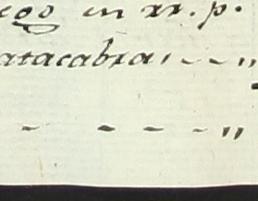 ego en xx. p.
atacabra, - - „
- - - - „